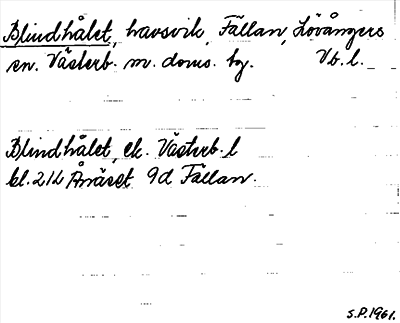 Blindhålet, havsvik, Fällan, Lövångers
sn. Västerb. m. doms. hg. Vb. l.
Blindhålet, ek. Västerb. l
bl. 212 Ånäset 9d Fällan.
S.P. 1961.